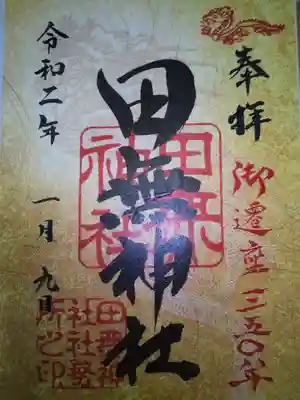 奉拝
御遷座三五〇年
田無神社
令和二年
一月九日
田無神社
田無神社社務所之印